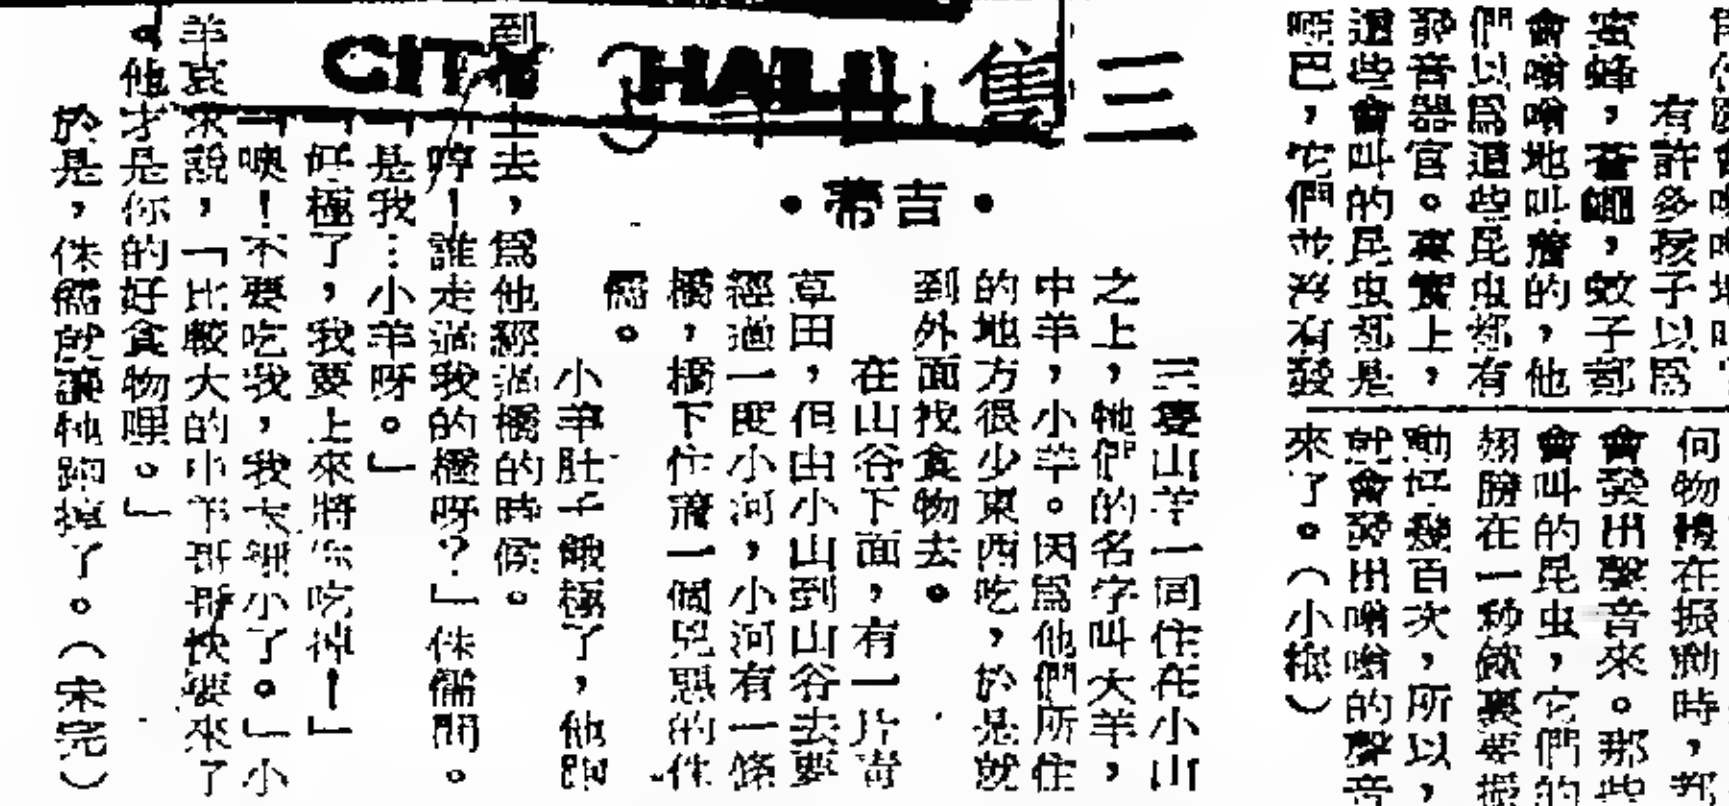 蜜蜂，蒼蠅，蚊子都
會嗡嗡地叫着的，他
們以爲這些昆虫都有
發音器官。其實上，
這些會叫的昆虫都是
啞巴，它們並沒有發
有許多孩子以爲
何物體在振動時，都
會發出聲音來。那些
會叫的昆虫，它們的
翅膀在一秒鐘裏要振
動好幾百次，所以，
就會發出嗡嗡的聲音
來了。（小根）
三隻
CITY HALL
•蒂吉•
三隻山羊一同住在小山
之上，牠們的名字叫大羊，
中羊，小羊。因爲他們所住
的地方很少東西吃，於是就
到外面找食物去。
在山谷下面，有一片青
草田，但由小山到山谷去要
經過一度小河，小河有一條
橋，橋下住着一個兇惡的侏
儒。
小羊肚子餓極了，他跑
到橋上去，爲他經過橋的時候。
「哼！誰走過我的橋呀？」侏儒問。
「是我…小羊呀。」
「好極了，我要上來將你吃掉！」
「噢！不要吃我，我太細小了。」小
羊哀求說，「比較大的中羊哥哥快要來了
。他才是你的好食物哩。」
於是，侏儒就讓牠跑掉了。（未完）